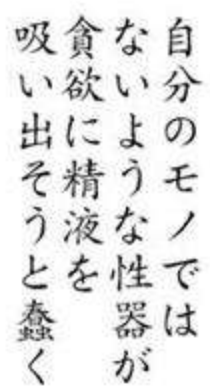 自分のモノでは
ないような性器が
貪欲に精液を
吸い出そうと蠢く